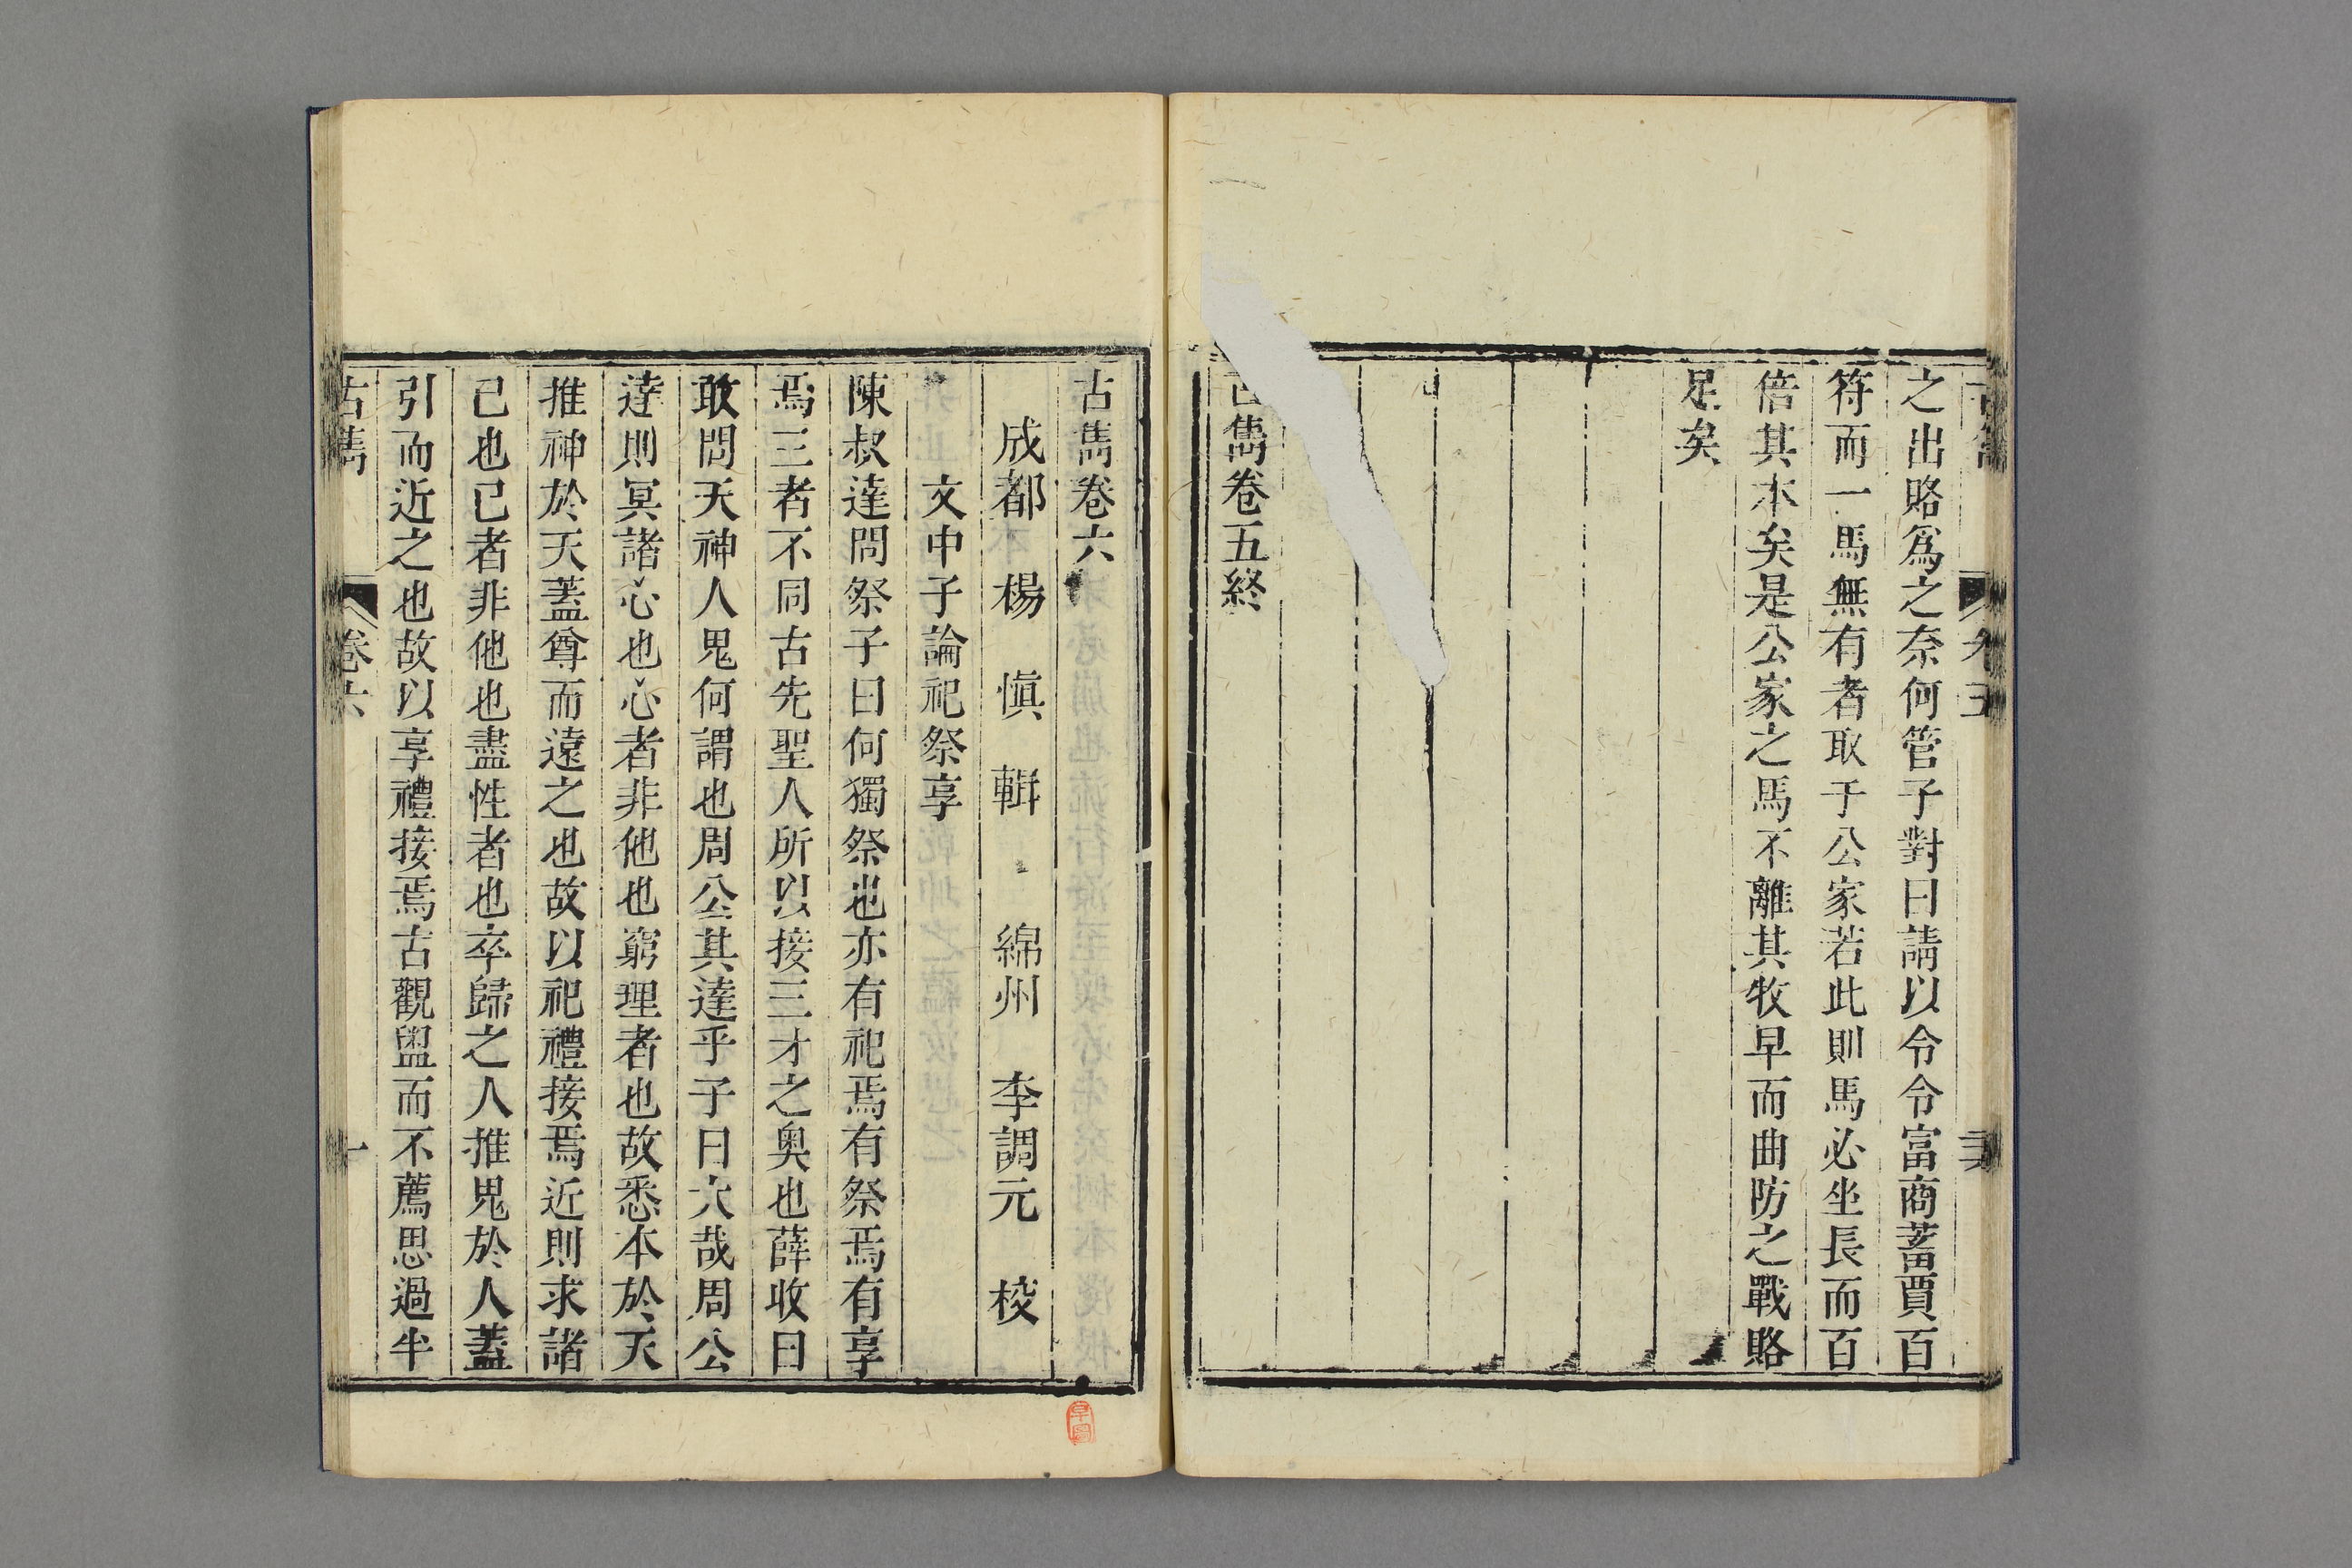 之出賂爲之奈何管子對曰請以令令富商蓄賈百
符而一馬無有者取于公家若此則馬必坐長而百
倍其本矣是公家之馬不離其牧早而曲防之戰賂
足矣
古雋卷五終
古雋卷六
成都 楊 慎 輯 綿州 李調元 校
文中子論祀祭享
陳叔達問祭子曰何獨祭也亦有祀焉有祭焉有享
焉三者不同古先聖人所以接三才之奥也薛收曰
敢問天神人鬼何謂也周公其達乎子曰大哉周公
逹則冥諸心也心者非他也窮理者也故悉本於天
推神於天蓋尊而遠之也故以祀禮接焉近則求諸
己也己者非他也盡性者也卒歸之人推鬼於人蓋
引而近之也故以享禮接焉古觀盥而不薦思過半
古雋 卷六 一